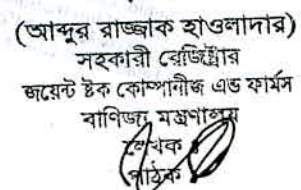 (আব্দুর রাজ্জাক হাওলাদার)
সহকারী রেজিষ্ট্রার
জয়েন্ট ষ্টক কোম্পানীজ এন্ড ফার্মস
বাণিজ্য মন্ত্রণালয়
লেখক ঃ
পাঠক